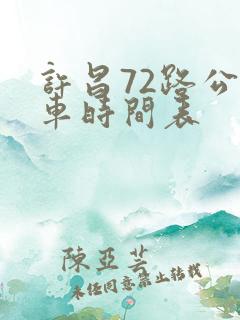 許昌72路公
車時間表
陳亞芸
未經同意禁止轉載